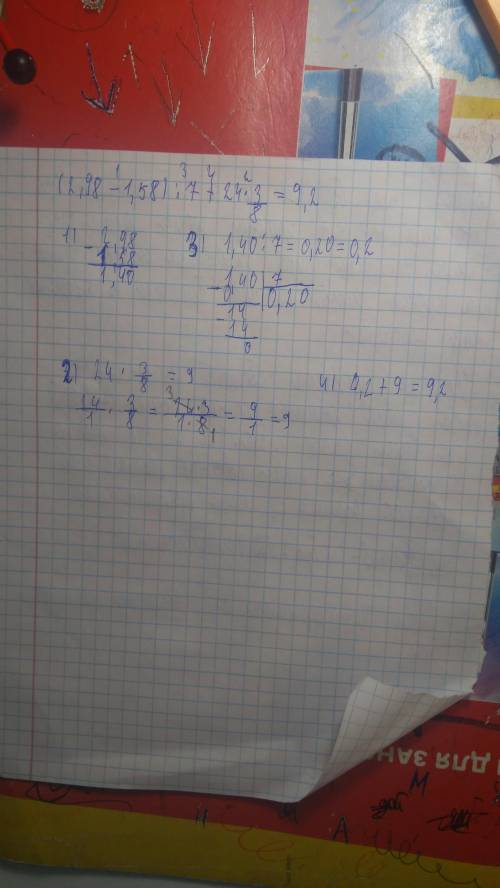 (2,98 - 1,58) : 7 + 24 · 3/8 = 9,2
1) 2,98
- 1,58
1,40
3) 1,40 : 7 = 0,20 = 0,2
- 1,40 | 7
0 | 0,20
- 14
14
0
2) 24 · 3/8 = 9
24/1 · 3/8 = 24·3/1·8 = 9/1 = 9
4) 0,2 + 9 = 9,2
ДЛЯ ЗАН
М
Н
А